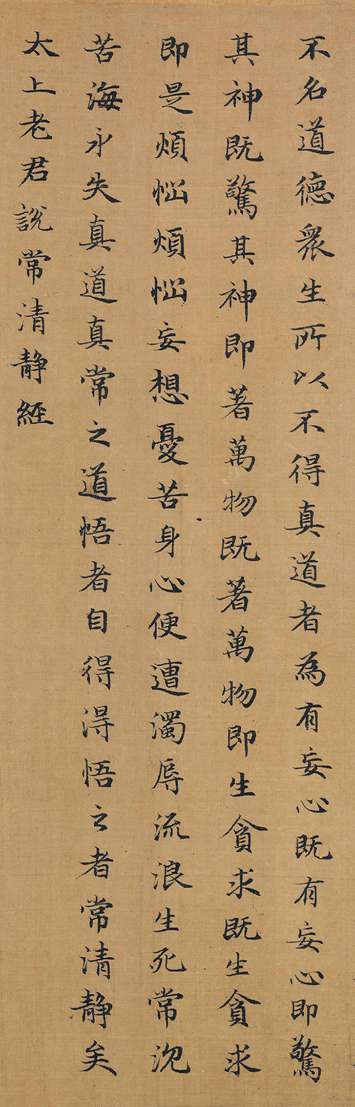 不名道德眾生所以不得真道者為有妄心既有妄心即驚
其神既驚其神即著萬物既著萬物即生貪求既生貪求
即是煩惱煩惱妄想憂苦身心便遭濁辱流浪生死常沉
苦海永失真道真常之道悟者自得得悟之者常清静矣
太上老君說常清静經